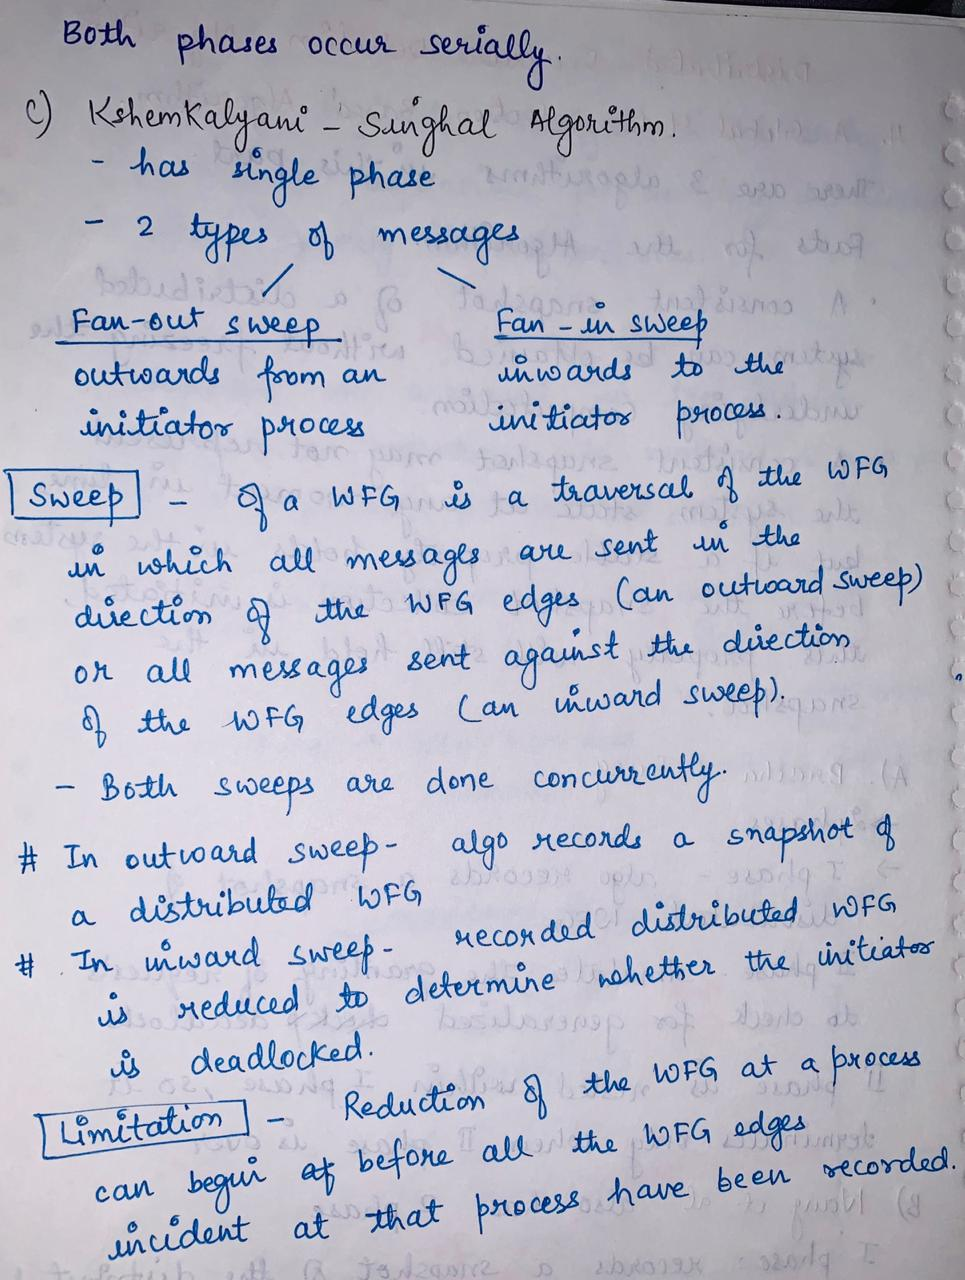 Both phases occur serially.
c) Kshemkalyani - Singhal Algorithm.
- has single phase
- 2 types of messages
Fan-out sweep Fan-in sweep
outwards from an inwards to the
initiator process initiator process.
Sweep - Of a WFG is a traversal of the WFG
in which all messages are sent in the
direction of the WFG edges (an outward sweep)
or all messages sent against the direction
of the WFG edges (an inward sweep).
- Both sweeps are done concurrently.
# In outward sweep - algo records a snapshot of
a distributed WFG
# In inward sweep - recorded distributed WFG
is reduced to determine whether the initiator
is deadlocked.
Limitation - Reduction of the WFG at a process
can begin before all the WFG edges
incident at that process have been recorded.